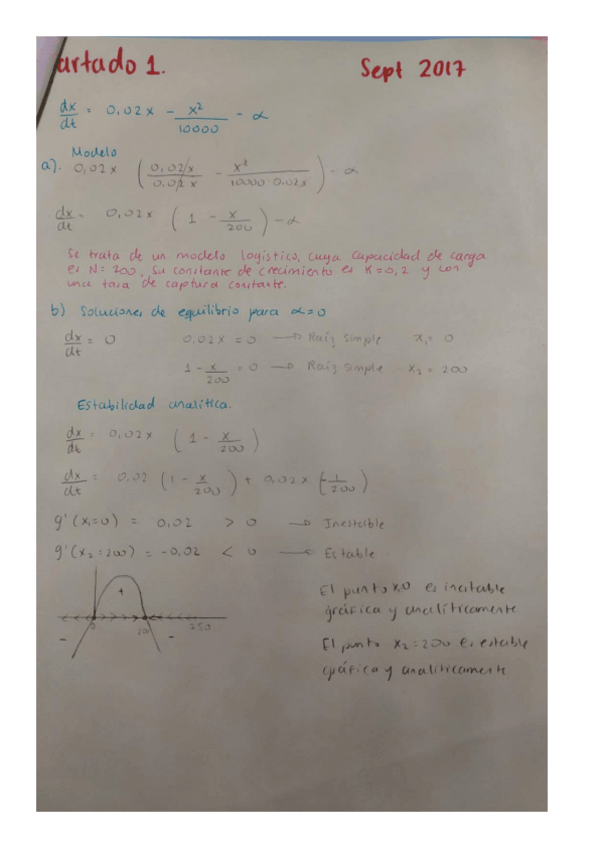 artado 1. Sept 2017
dx/dt = 0,02x - x²/10000 - α
Modelo
a). 0,02x (0,02x/0.02x - x²/10000·0.02x) - α
dx/dt = 0,02x (1 - x/200) - α
Se trata de un modelo logístico, cuya capacidad de carga
es N=200, Su constante de crecimiento es K=0,2 y con
una tasa de captura constante.
b) Soluciones de equilibrio para α=0
dx/dt = 0 0,02x = 0 → Raíz simple x₁= 0
1 - x/200 = 0 → Raíz simple x₂ = 200
Estabilidad analítica.
dx/dt = 0,02x (1 - x/200)
dx/dt = 0,02 (1 - x/200) + 0,02x (-1/200)
g'(x₁=0) = 0,02 > 0 → Inestable
g'(x₂=200) = -0,02 < 0 → Estable
+
0 200 250
- -
El punto x,0 es inestable
gráfica y analíticamente
El punto x₂=200 es estable
gráfica y analíticamente